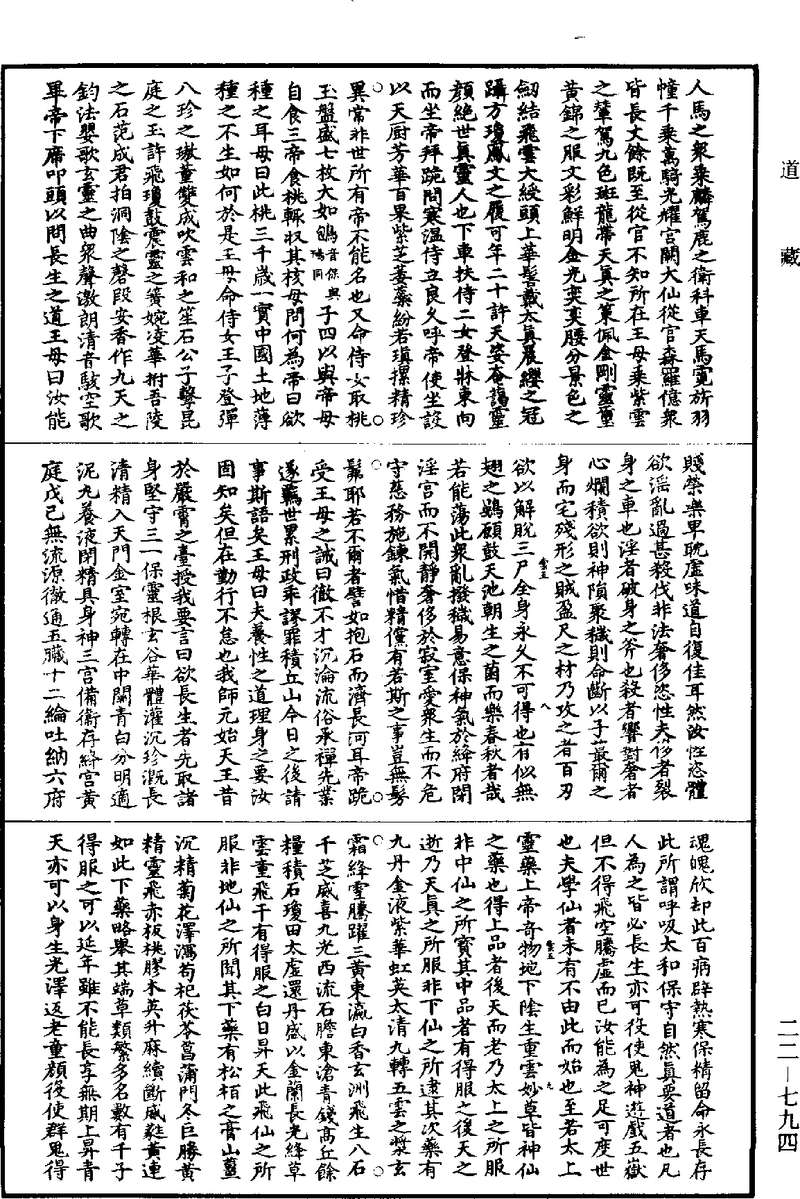 道藏
人馬之衆乘麟駕鹿之衛科車天馬霓旂羽
幢千乘萬騎光耀宮闕大仙從官森羅億衆
皆長丈餘既至從官不知所在王母乘紫雲
之輦駕九色斑龍帶天真之策佩金剛靈璽
黃錦之服文彩鮮明金光奕奕腰分景色之
劒結飛雲大綬頭上華髻戴太真晨纓之冠
躡方瓊鳳文之履可年二十許天姿菴藹靈
顏絕世真靈人也下車扶侍二女登牀東向
而坐帝拜跪問寒溫侍立良久呼帝使坐設
以天厨芳華百果紫芝萎蘂紛若瑱摞精珍
異常非世所有帝不能名也又命侍女取桃
玉盤盛七枚大如鴄音保與鴇同子四以與帝母
自食三帝食桃輒収其核母問何為帝曰欲
種之耳母曰此桃三千歲一實中國土地薄
種之不生如何於是王母命侍女王子登彈
八珍之璈董雙成吹雲和之笙石公子擊昆
庭之玉許飛瓊鼓震靈之簧婉凌華拊吾陵
之石范成君拍洞陰之磬段安香作九天之
鈞法嬰歌玄靈之曲衆聲激朗清音駭空歌
畢帝下席叩頭以問長生之道王母曰汝能
賤榮樂卑耽虛味道自復佳耳然汝性恣體
欲淫亂過甚殺伐非法奢侈恣性夫侈者裂
身之車也淫者破身之斧也殺者響對奢者
心爛積欲則神隕聚穢則命斷以子蕞爾之
身而宅殘形之賊盈尺之材乃攻之者百刃
欲以解脫三尸全身永久不可得也有似無
翅之鷃願鼓天池朝生之菌而樂春秋者哉
若能蕩此衆亂撥穢易意保神氣於絳府閉
淫宮而不開靜奢侈於寂室愛衆生而不危
守慈務施鍊氣惜精儻有若斯之事豈無髣
髴耶若不爾者譬如抱石而濟長河耳帝跪
受王母之誡曰徹不才沉淪流俗承禪先業
遂羈世累刑政乖謬罪積丘山今日之後請
事斯語矣王母曰夫養性之道理身之要汝
固知矣但在勤行不怠也我師元始天王昔
於嚴霄之臺授我要言曰欲長生者先取諸
身堅守三一保靈根玄谷華體灌沉珍溉長
清精入天門金室宛轉在中關青白分明適
泥丸養液閉精具身神三宮備衛存絳宮黃
庭戊己無流源徹通五臟十二綸吐納六府
魂魄欣却此百病辟熱寒保精留命永長存
此所謂呼吸太和保守自然真要道者也凡
人為之皆必長生亦可役使鬼神遊戲五嶽
但不得飛空騰虛而已汝能為之足可度世
也夫學仙者未有不由此而始也至若太上
靈藥上帝奇物地下陰生重雲妙草皆神仙
之藥也得上品者後天而老乃太上之所服
非中仙之所寶其中品者有得服之後天之
逝乃天真之所服非下仙之所逮其次藥有
九丹金液紫華虹英太清九轉五雲之漿玄
霜絳雪騰躍三黃東瀛白香玄洲飛生八石
千芝威喜九光西流石膽東滄青錢高丘餘
糧積石瓊田太虛還丹盛以金蘭長光絳草
雲童飛千有得服之白日昇天此飛仙之所
服非地仙之所聞其下藥有松栢之膏山薑
沉精菊花澤瀉苟杞茯苓菖蒲門冬巨勝黃
精靈飛赤板桃膠木英升麻續斷威蕤黃連
如此下藥略舉其端草類繁多名數有千子
得服之可以延年雖不能長享無期上昇青
天亦可以身生光澤返老童顏役使群鬼得
二二—七九四